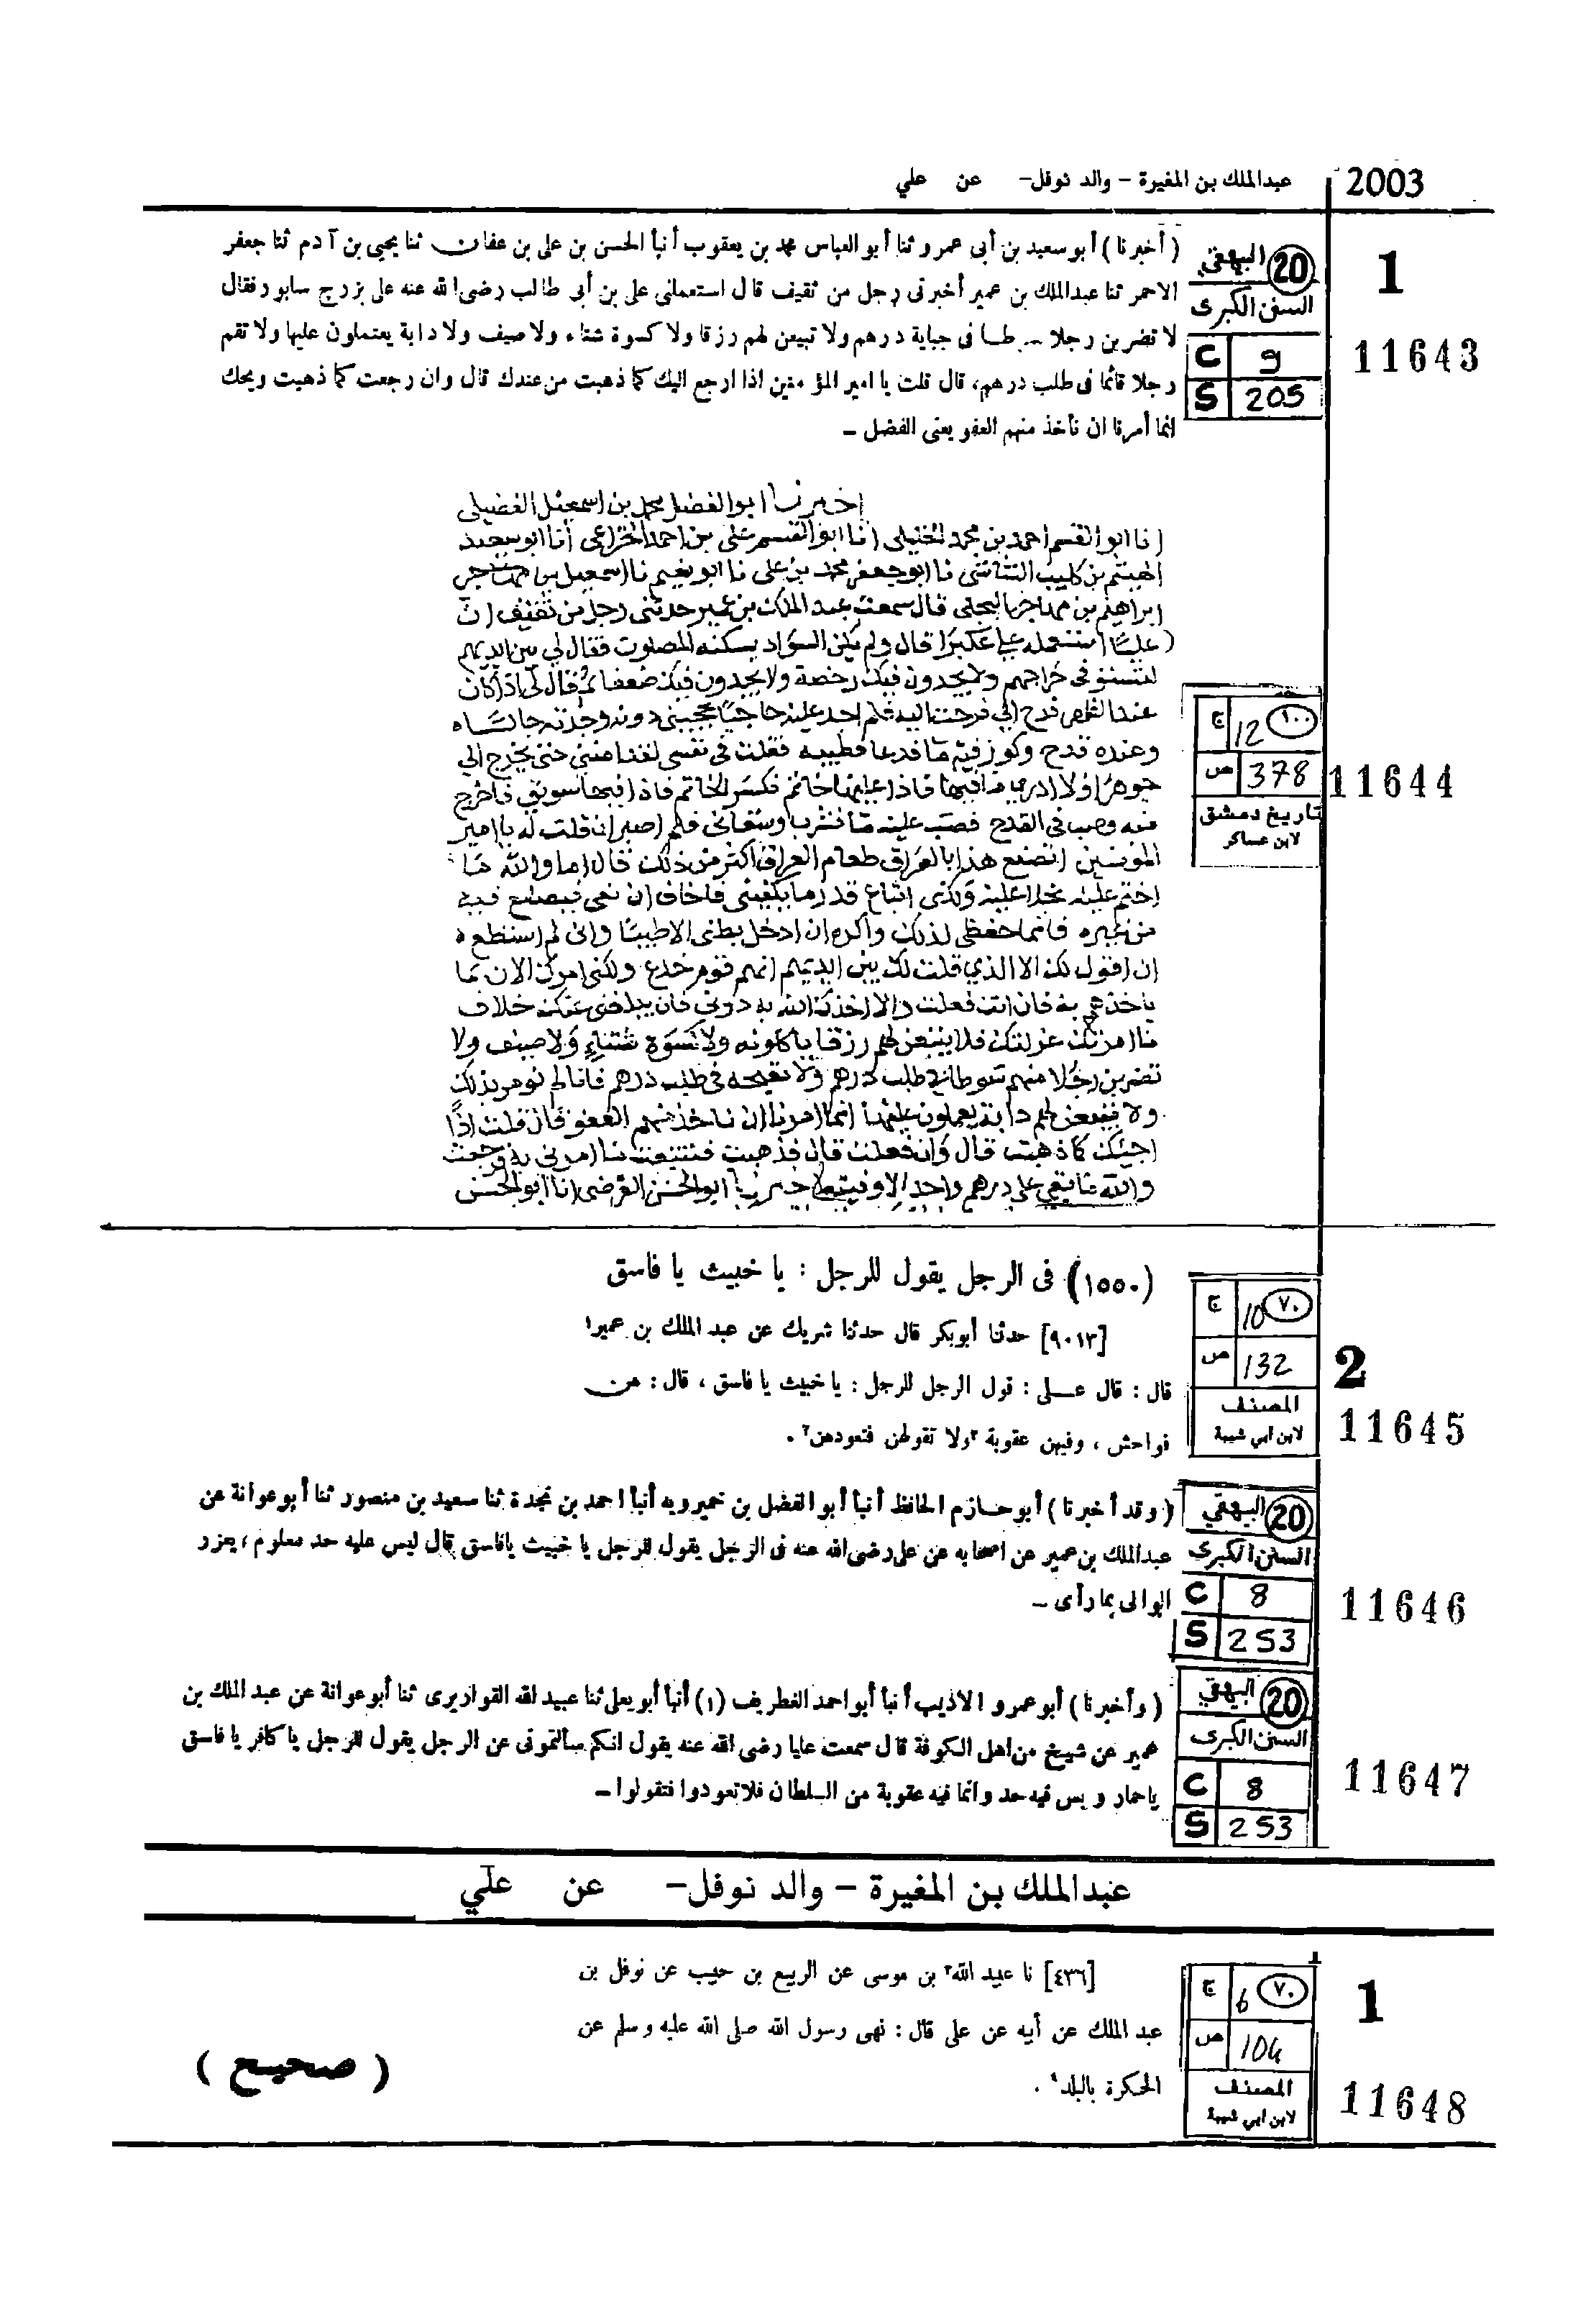 2003
عبدالملك بن المغيرة – والد نوفل– عن علي
1
11643
20 البيهقي
السنن الكبرى
C 9
S 205
( أخبرنا ) أبو سعيد بن أبى عمرو ثنا أبو العباس محمد بن يعقوب أنبأ الحسن بن على بن عفان ثنا يحيى بن آدم ثنا جعفر
الاحمر ثنا عبدالملك بن عمير أخبرنى رجل من ثقيف قال استعملنى على بن أبى طالب رضى الله عنه على بزرج سابور فقال
لا تضربن رجلا سوطا فى جباية درهم ولا تبيعن لهم رزقا ولا كسوة شتاء ولا صيف ولا دابة يعتملون عليها ولا تقم
رجلا قائما فى طلب درهم، قال قلت يا امير المؤمنين اذا ارجع اليك كما ذهبت من عندك قال وان رجعت كما ذهبت ويحك
انما أمرنا ان نأخذ منهم العفو يعنى الفضل –
11644
١٠٠ ج 12
ص 378
تاريخ دمشق
لابن عساكر
اخبرنا ابو الفضل محمد بن اسمعيل الفضيلى
انا ابو القسم احمد بن محمد الخليلى انا ابو القسم على بن احمد الخزاعى انا ابو سعيد
الهيثم بن كليب الشاشى نا ابو جعفر محمد بن على نا ابو نعيم نا اسمعيل بن
ابراهيم بن مهاجر البجلى قال سمعت عبد الملك بن عمير حدثنى رجل من ثقيف ان
عليا استعمله على عكبرا قال ولم يكن السواد يسكنه المصلون فقال لي بين ايديهم
لتستوفى خراجهم ولا يجدون فيك رخصة ولا يجدون فيك ضعفا ثم قال لى اذا كان
عند الظهر فرح الي فرحت اليه فلم اجد عليه حاجبا يحجبنى دونه وجدته جالسا
وعنده قدح وكوز فيه ما فدعا بطيبه فقلت فى نفسى لقد امننى حتى يخرج الي
جوهرا ولا ادري ما فيها فاذا عليها خاتم فكسر الخاتم فاذا فيها سويق فاخرج
منه وصب فى القدح فصب عليه ما فشرب وسقانى فلم اصبر ان قلت له يا امير
المؤمنين اتصنع هذا بالعراق طعام العراق اكثر من ذلك قال اما والله ما
اختم عليه بخلا عليه ولكنى ابتاع قدر ما يكفينى فاخاف ان نمى فيصنع فيه
من غيره فانما حفظى لذلك واكره ان ادخل بطنى الا طيبا وانى لم استطع
ان اقول لك الا الذي قلت لك بين ايديهم انهم قوم خدع ولكنى امرك الان بما
تاخذهم به فان انت فعلت والا اخذك الله به دونى فان يبلغنى عنك خلاف
ما امرتك عزلتك فلا تبيعن لهم رزقا ياكلونه ولا كسوة شتاء ولا صيف ولا
تضربن رجلا منهم سوطا فى طلب درهم ولا تقيمه فى طلب درهم فانا لم نومر بذلك
ولا تبيعن لهم دابة يعملون عليها انما امرنا ان ناخذ منهم العفو قال قلت اذا
اجيئك كما ذهبت قال وان فعلت قال فذهبت فتتبعت ما امرنى به فرجعت
والله ما بقى على درهم واحد الا وفيته اخبرنا ابو الحسن الفرضى انا ابو الحسن
2
11645
٧٠ ج 10
ص 132
المصنف
لابن أبي شيبة
(١٥٥٠) فى الرجل يقول للرجل : يا خبيث يا فاسق
[٩٠١٣] حدثنا أبوبكر قال حدثنا شريك عن عبد الملك بن عمير١
قال : قال عــلى : قول الرجل للرجل : يا خبيث يا فاسق ، قال : هن
فواحش ، وفيهن عقوبة ٢ولا تقولهن فتعودهن٢ .
11646
20 البيهقي
السنن الكبرى
C 8
S 253
( وقد أخبرنا ) أبو حازم الحافظ أنبأ أبو الفضل بن خميرويه أنبأ احمد بن نجدة ثنا سعيد بن منصور ثنا أبو عوانة عن
عبدالملك بن عمير عن اصحابه عن على رضى الله عنه فى الرجل يقول للرجل يا خبيث يافاسق قال ليس عليه حد معلوم ، يعزر
الوالى بما رأى –
11647
20 البيهقي
السنن الكبرى
C 8
S 253
( وأخبرنا ) أبو عمرو الاديب أنبأ أبو احمد الغطريف (١) أنبأ أبو يعلى ثنا عبيد الله القواريرى ثنا أبو عوانة عن عبد الملك بن
عمير عن شيخ من اهل الكوفة قال سمعت عليا رضى الله عنه يقول انكم سألتمونى عن الرجل يقول للرجل يا كافر يا فاسق
يا حمار وليس فيه حد وانما فيه عقوبة من السلطان فلا تعودوا فتقولوا –
عبدالملك بن المغيرة – والد نوفل– عن علي
1
11648
٧٠ ج 6
ص 104
المصنف
لابن ابي شيبة
[٤٣٦] نا عبيد الله٣ بن موسى عن الربيع بن حبيب عن نوفل بن
عبد الملك عن أبيه عن على قال : نهى رسول الله صلى الله عليه وسلم عن
الحكرة بالبلد٤ .
( صحيح )